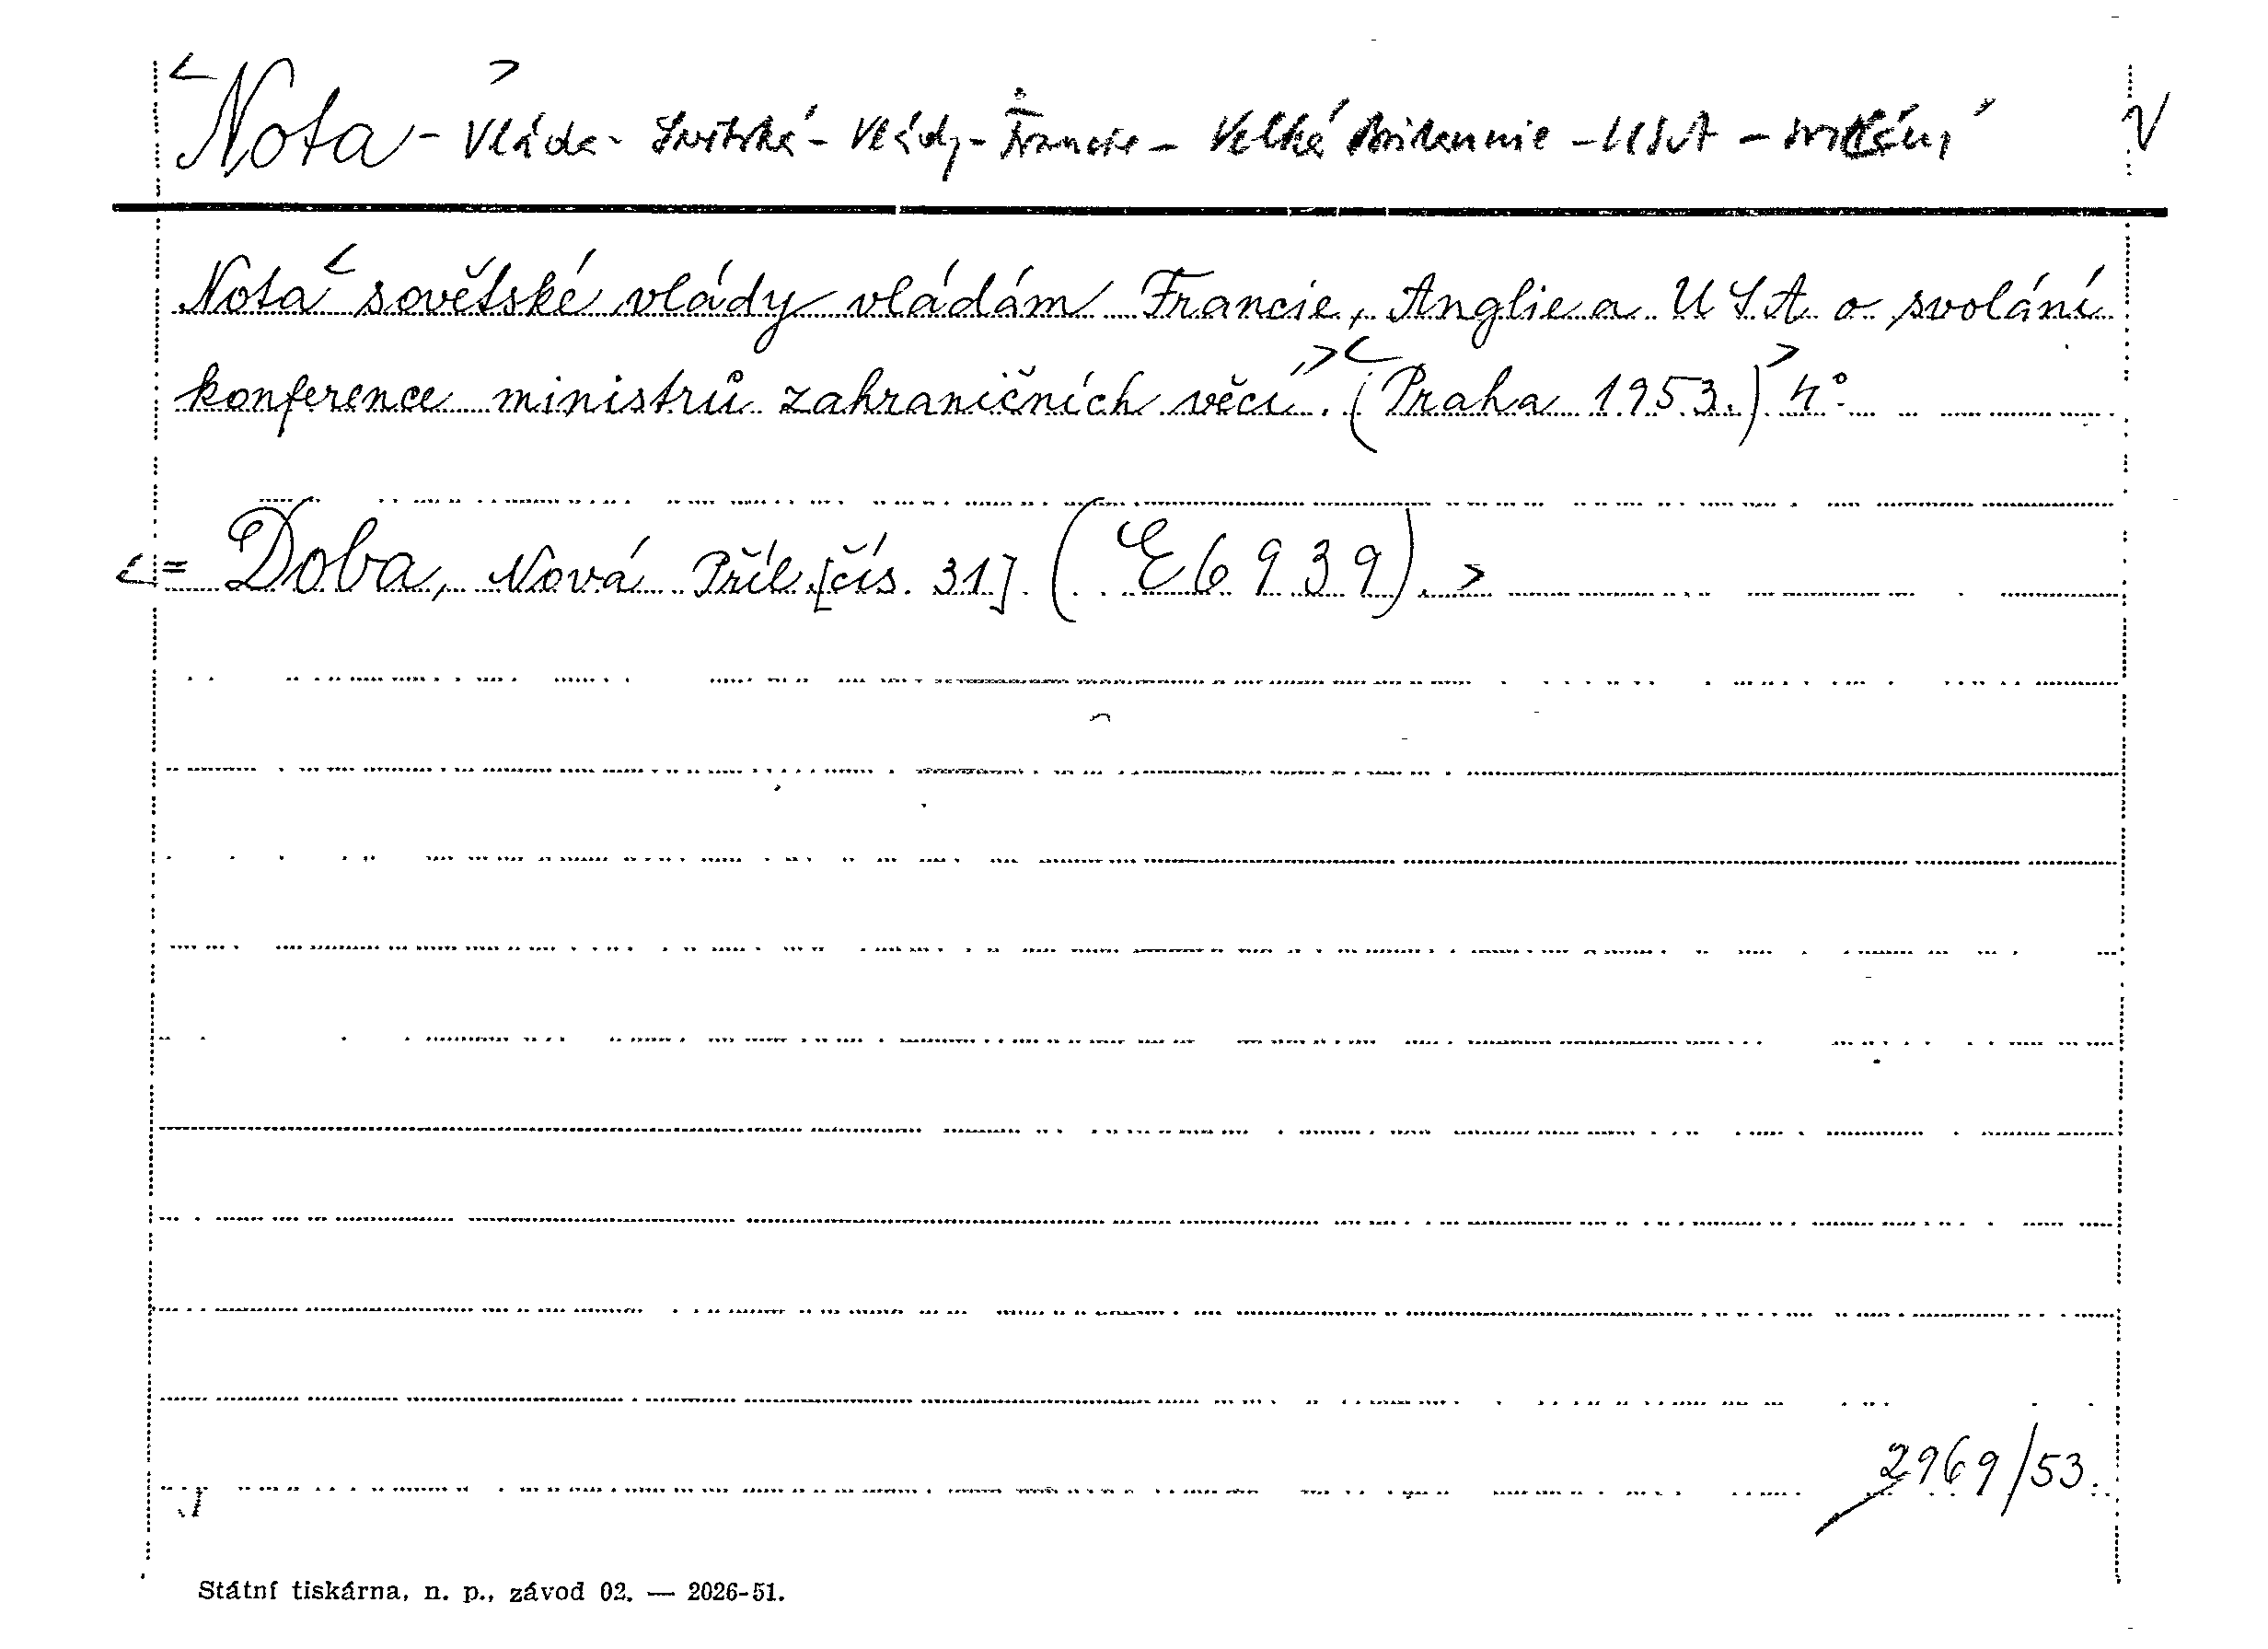 <Nota> - Vláda - Sovětská - Vlády - Francie - Velké Britannie - USA - svolání V
Nota < sovětské vlády vládám Francie, Anglie a USA o svolání
konference ministrů zahraničních věcí.> <(Praha 1953.)> 4°
<= Doba, Nová Příl. [čís. 31]. (E 6939). >
2969/53.
Státní tiskárna, n. p., závod 02. — 2026-51.